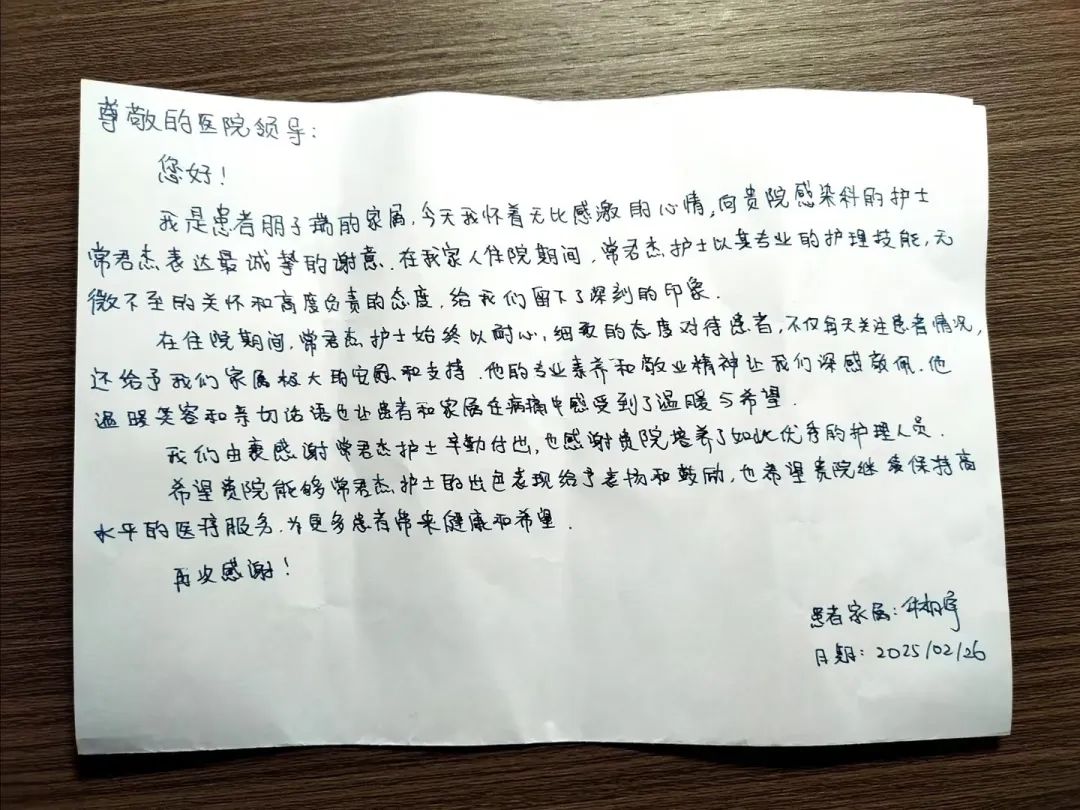 尊敬的医院领导：
您好！
我是患者朋子瑞的家属，今天我怀着无比感激的心情，向贵院感染科的护士
常君杰表达最诚挚的谢意．在我家人住院期间，常君杰护士以其专业的护理技能，无
微不至的关怀和高度负责的态度，给我们留下了深刻的印象．
在住院期间，常君杰护士始终以耐心，细致的态度对待患者，不仅每天关注患者情况，
还给予我们家属极大的安慰和支持．他的专业素养和敬业精神让我们深感敬佩．他
温暖笑容和亲切话语也让患者和家属在病痛中感受到了温暖与希望．
我们由衷感谢常君杰护士辛勤付出，也感谢贵院培养了如此优秀的护理人员．
希望贵院能够常君杰护士的出色表现给予表扬和鼓励，也希望贵院继续保持高
水平的医疗服务．为更多患者带来健康和希望．
再次感谢！
患者家属：
日期：2025/02/26